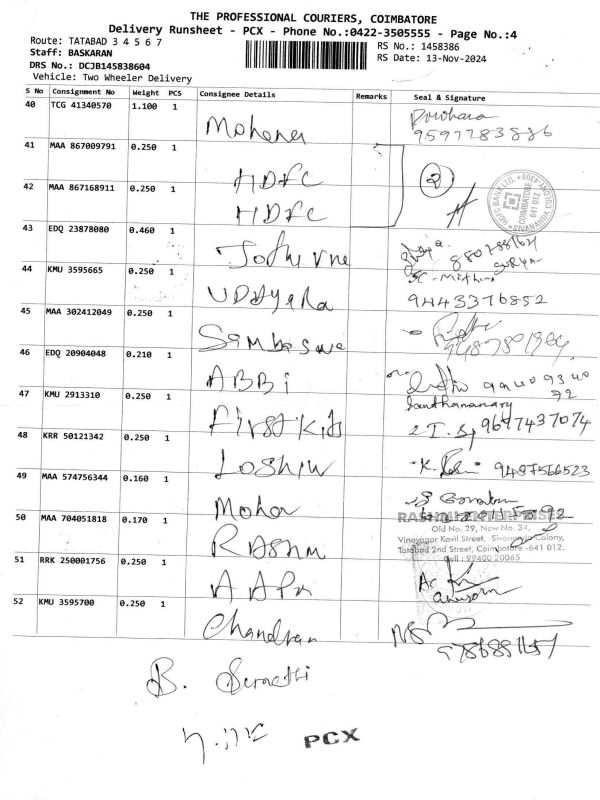 THE PROFESSIONAL COURIERS, COIMBATORE
Delivery Runsheet - PCX - Phone No.:0422-3505555 - Page No.:4
Route: TATABAD 3 4 5 6 7
Staff: BASKARAN
DRS No.: DCJB145838604
Vehicle: Two Wheeler Delivery
RS No.: 1458386
RS Date: 13-Nov-2024
S No Consignment No Weight PCS Consignee Details Remarks Seal & Signature
40 TCG 41340570 1.100 1
Mohana
9597783886
41 MAA 867009791 0.250 1
HDFC
2
42 MAA 867168911 0.250 1
HDFC
HDFC BANK LTD.
COIMBATORE
641 012
SIVANANDA COLONY
43 EDQ 23878080 0.460 1
44 KMU 3595665 0.250 1
Uddyana
9443376852
45 MAA 302412049 0.250 1
46 EDQ 20904048 0.210 1
ABBi
99409340
72
47 KMU 2913310 0.250 1
First Kids
9697437074
48 KRR 50121342 0.250 1
9487566523
49 MAA 574756344 0.160 1
Mohan
50 MAA 704051818 0.170 1
RASHMI ENTERPRISES
Old No. 29, New No. 34,
Vinayagar Kovil Street, Sivananda Colony,
Tatabad 2nd Street, Coimbatore -641 012.
Cell : 99400 20065
51 RRK 250001756 0.250 1
52 KMU 3595700 0.250 1
Chandran
B.
PCX